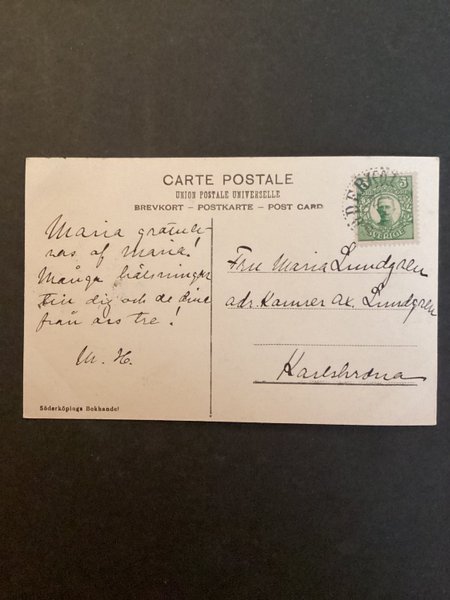 CARTE POSTALE
UNION POSTALE UNIVERSELLE
BREVKORT – POSTKARTE – POST CARD
5
SVERIGE
Maria gratule-
ras af Maria!
Många hälsningar
till dig och de dina
från oss tre!
M. H.
Fru Maria Lundgren
adr. Kamrer Ax. Lundgren
Karlskrona
Söderköpings Bokhandel